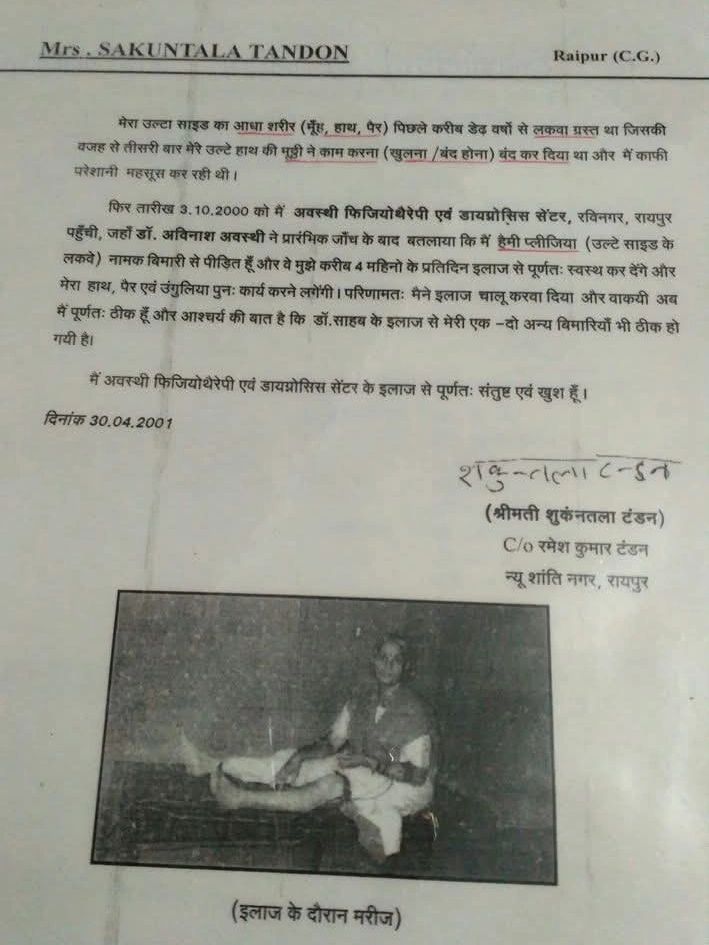 Mrs . SAKUNTALA TANDON
Raipur (C.G.)
मेरा उल्टा साइड का आधा शरीर (मूँह, हाथ, पैर) पिछले करीब डेढ़ वर्षो से लकवा ग्रस्त था जिसकी
वजह से तीसरी बार मेरे उल्टे हाथ की मूठ्ठी ने काम करना (खुलना /बंद होना) बंद कर दिया था और मैं काफी
परेशानी महसूस कर रही थी।
फिर तारीख 3.10.2000 को मैं अवस्थी फिजियोथैरेपी एवं डायग्नोसिस सेंटर, रविनगर, रायपुर
पहुँची, जहाँ डॉ. अविनाश अवस्थी ने प्रारंभिक जाँच के बाद बतलाया कि मैं हैमी प्लीजिया (उल्टे साइड के
लकवे) नामक बिमारी से पीड़ित हूँ और वे मुझे करीब 4 महिनो के प्रतिदिन इलाज से पूर्णतः स्वस्थ कर देंगे और
मेरा हाथ, पैर एवं उंगुलिया पुनः कार्य करने लगेंगी। परिणामतः मैने इलाज चालू करवा दिया और वाकयी अब
मैं पूर्णतः ठीक हूँ और आश्चर्य की बात है कि डॉ.साहब के इलाज से मेरी एक –दो अन्य बिमारियाँ भी ठीक हो
गयी है।
मैं अवस्थी फिजियोथैरेपी एवं डायग्नोसिस सेंटर के इलाज से पूर्णतः संतुष्ट एवं खुश हूँ।
दिनांक 30.04.2001
शकुन्तला टन्डन
(श्रीमती शुकंनतला टंडन)
C/o रमेश कुमार टंडन
न्यू शांति नगर, रायपुर
(इलाज के दौरान मरीज)